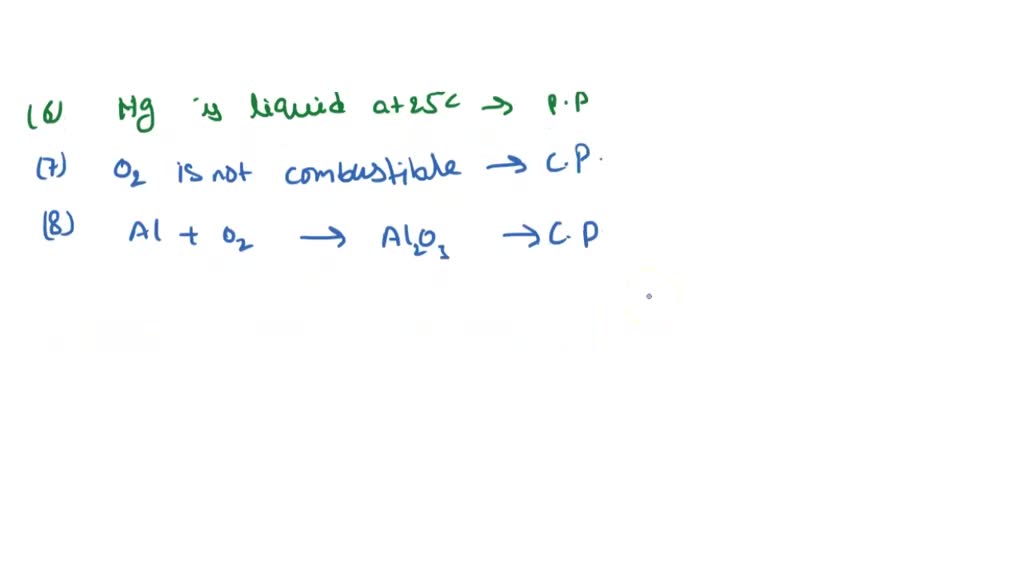 (6) Hg is liquid at 25C → P.P
(7) O₂ is not combustible → C.P.
(8) Al + O₂ → Al₂O₃ → C.P